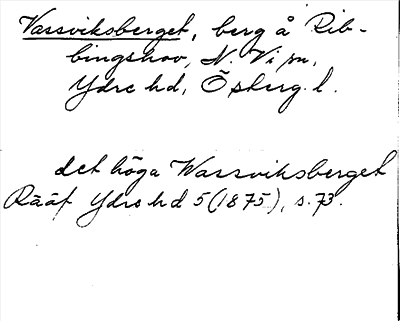 Vassviksberget, berg å Rib-
bingshov, N. Vi sn,
Ydre hd, Ög. l.
det höga Wassviksberget
Rääf Ydre hd 5 (1875), s. 73.